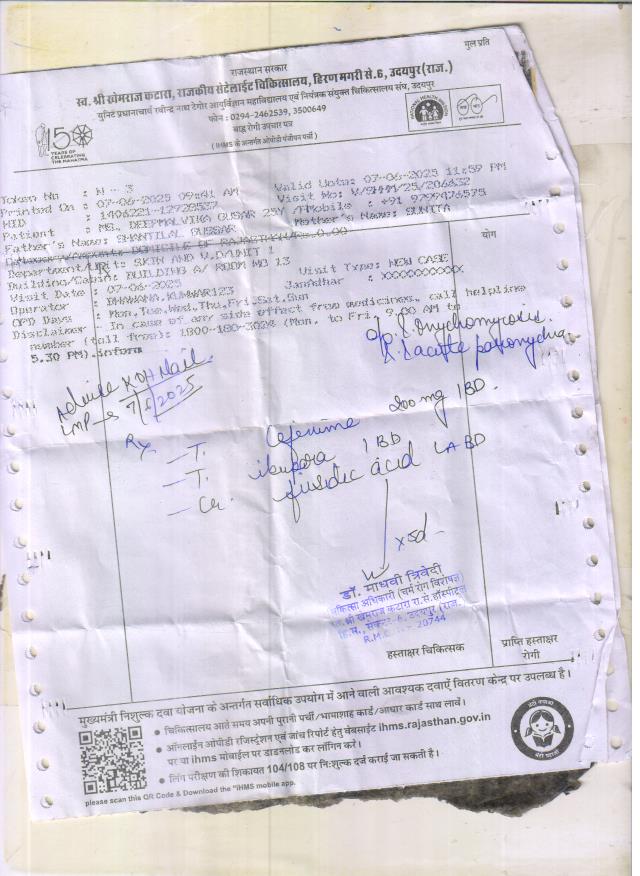 मूल प्रति
राजस्थान सरकार
स्व. श्री खेमराज कटारा, राजकीय सेटेलाईट चिकित्सालय, हिरण मगरी से.6, उदयपुर(राज.)
युनिट प्रधानाचार्य रवीन्द्र नाथ टेगोर आयुर्विज्ञान महाविद्यालय एवं नियंत्रक संयुक्त चिकित्सालय संघ, उदयपुर
फोन : 0294-2462539, 3500649
बाह्य रोगी उपचार पत्र
( IHMS के अन्तर्गत ओपीडी पंजीयन पर्ची )
150
YEARS OF CELEBRATING THE MAHATMA
Token No : N - 3
Printed On : 07-06-2025 09:41 AM Valid Upto: 07-06-2025 11:59 PM
HID : 1406221-12728537 Visit No: V/SHHM/25/206832
Patient : MS. DEEPMALVIKA GUSAR 25Y /F Mobile : +91 9799476575
Father's Name: SHANTILAL GUSSAR Mother's Name: SUNITA
DOMICILE OF RAJASTHAN 0.00
Department/Unit: SKIN AND V.D/UNIT 1
Building/Cabin: BUILDING A/ ROOM NO 13 Visit Type: NEW CASE
Visit Date : 07-06-2025 Janadhar : XXXXXXXXXX
Operator : BHAWANA.KUNWAR123
OPD Days : Mon,Tue,Wed,Thu,Fri,Sat,Sun
Disclaimer : In case of any side effect from medicines, call helpline
number (toll free): 1800-180-3024 (Mon. to Fri. 9.00 AM to
5.30 PM).inform
योग
Onychomycosis
acute paronychia
Advice KOH Nail
LMP 7/6/2025
Rx
T. Cefixime 200 mg 1BD
T. 1BD
Cr. fusidic acid LA BD
x5d
डॉ. माधवी त्रिवेदी
चिकित्सा अधिकारी (चर्म रोग विशेषज्ञ)
स्व.श्री खेमराज कटारा रा.से.हॉस्पीटल
हि.म., सेक्टर-6, उदयपुर (राज.)
20744
हस्ताक्षर चिकित्सक
प्राप्ति हस्ताक्षर
रोगी
मुख्यमंत्री निशुल्क दवा योजना के अन्तर्गत सर्वाधिक उपयोग में आने वाली आवश्यक दवाऐं वितरण केन्द्र पर उपलब्ध है।
• चिकित्सालय आते समय अपनी पुरानी पर्ची /भामाशाह कार्ड/आधार कार्ड साथ लावें।
• ऑनलाईन ओपीडी रजिस्ट्रेशन एवं जांच रिपोर्ट हेतु वेबसाईट ihms.rajasthan.gov.in
पर या ihms मोबाईल पर डाउनलोड कर लॉगिन करें।
• लिंग परीक्षण की शिकायत 104/108 पर निःशुल्क दर्ज कराई जा सकती है।
please scan this QR Code & Download the "IHMS mobile app.